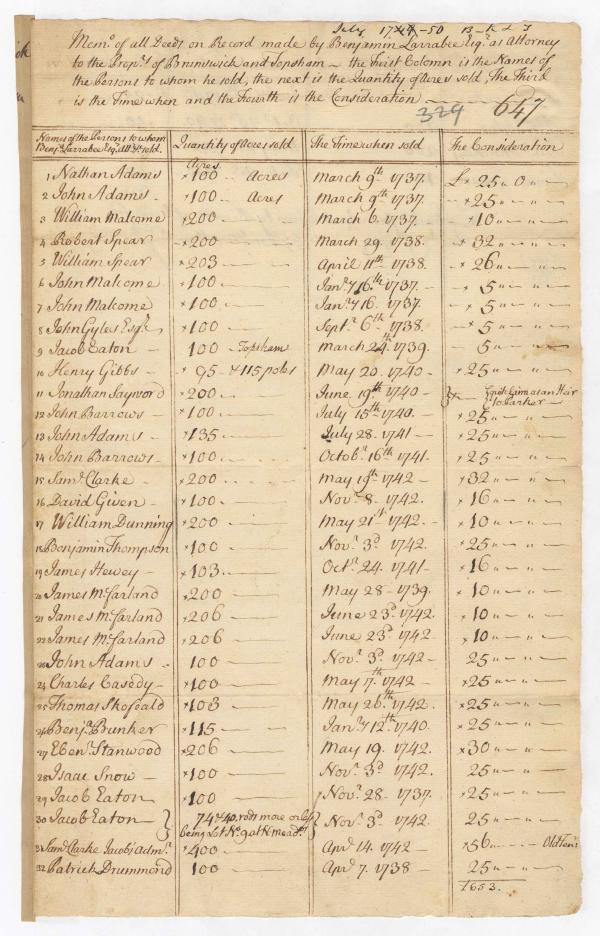 July 17 -50 B-K L I
Memo. of all Deeds on Record made by Benjamin Larrabee Esqr. as Attorney
to the Proprs. of Brunswick and Topsham – the First Colomn is the Names of
the Persons to whom he sold, the next is the Quantity of Acres sold, The Third
is the Time when and the Fourth is the Consideration
324 647
Names of the Persons to whom Benja. Larrabee Esq. Att. sold. Quantity of Acres sold The Time when sold The Consideration
Acres
1 Nathan Adams ×100 Acres March 9th 1737. £ ×25 „ 0 „
2 John Adams ×100 Acres March 9th 1737. ×25 „ „
3 William Malcome ×200 March 6. 1737. ×10 „ „
4 Robert Spear ×200 March 29. 1738. ×32 „ „
5 William Spear ×203 April 11th 1738. ×26 „ „
6 John Malcome ×100 Janry 16th. 1737. ×5 „ „
7 John Malcome ×100 Janry 16. 1737. ×5 „ „
8 John Gyles Esqr. ×100 Septr. 6th. 1738. ×5 „ „
9 Jacob Eaton 100 Topsham March 24th. 1739. 5 „ „
10 Henry Gibbs ×95 & 115 poles May 20. 1740 ×25 „ „
11 Jonathan Sayword ×200 June 19th 1740 } quit Claim as an Heir to Parker
12 John Barrows ×100 July 15th 1740. ×25 „ „
13 John Adams ×135 July 28. 1741 ×25 „ „
14 John Barrows ×100 Octobr. 16th 1741. ×25 „ „
15 Saml. Clarke ×200 May 19th 1742 ×32 „ „
16 David Given ×100 Novr. 8. 1742. ×16 „ „
17 William Dunning ×200 May 21th 1742 ×10 „ „
18 Benjamin Thompson ×100 Novr. 3d. 1742. ×25 „ „
19 James Hewey ×103. Octr. 24. 1741 ×16 „ „
20 James McFarland ×200 May 28 1739. ×10 „ „
21 James McFarland ×206 June 23d. 1742. ×10 „ „
22 James McFarland ×206 June 23d. 1742 ×10 „ „
23 John Adams 100 Novr. 3d. 1742 25 „ „
24 Charles Casedy ×100 May 7th. 1742 ×25 „ „
25 Thomas Skofeald ×103 May 26th. 1742. ×25 „ „
26 Benja. Bunker ×115 Janry 12th. 1740. ×25 „ „
27 Ebenr. Stanwood ×206 May 19. 1742. ×30 „ „
28 Isaac Snow ×100 Novr. 3d. 1742 25 „ „
29 Jacob Eaton ×100 Novr. 28 1737. ×25 „ „
30 Jacob Eaton } 74 & 40, rods more or less being Lot No. 9 at meadw. } Novr. 3d. 1742 25 „ „
31 Saml. Clarke Jacobs Admr. ×400 Apr. 14. 1742 ×56 „ Old Tenr.
32 Patrick Drummond 100 Apr. 7. 1738 25 „ „
1653.